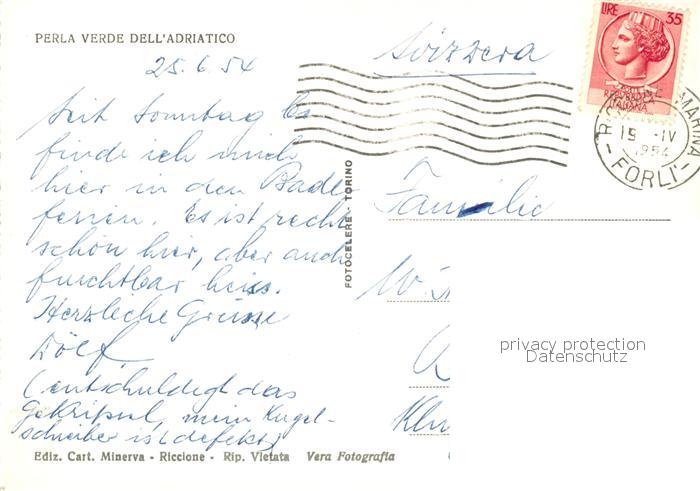 PERLA VERDE DELL'ADRIATICO
25.6.54
Seit Sonntag
finde ich mich
hier in den Bade
ferien. Es ist recht
schön hier, aber auch
furchtbar heiss.
Herzliche Grüsse
Dölf
(entschuldigt das
Gekritzel, mein Kugel-
schreiber ist defekt)
Ediz. Cart. Minerva - Riccione - Rip. Vietata Vera Fotografia
FOTOCELERE - TORINO
Svizzera
LIRE 35
REPUBBLICA
ITALIANA
MARINA
19 -IV
1954
- FORLI -
Familie
W.
privacy protection
Datenschutz